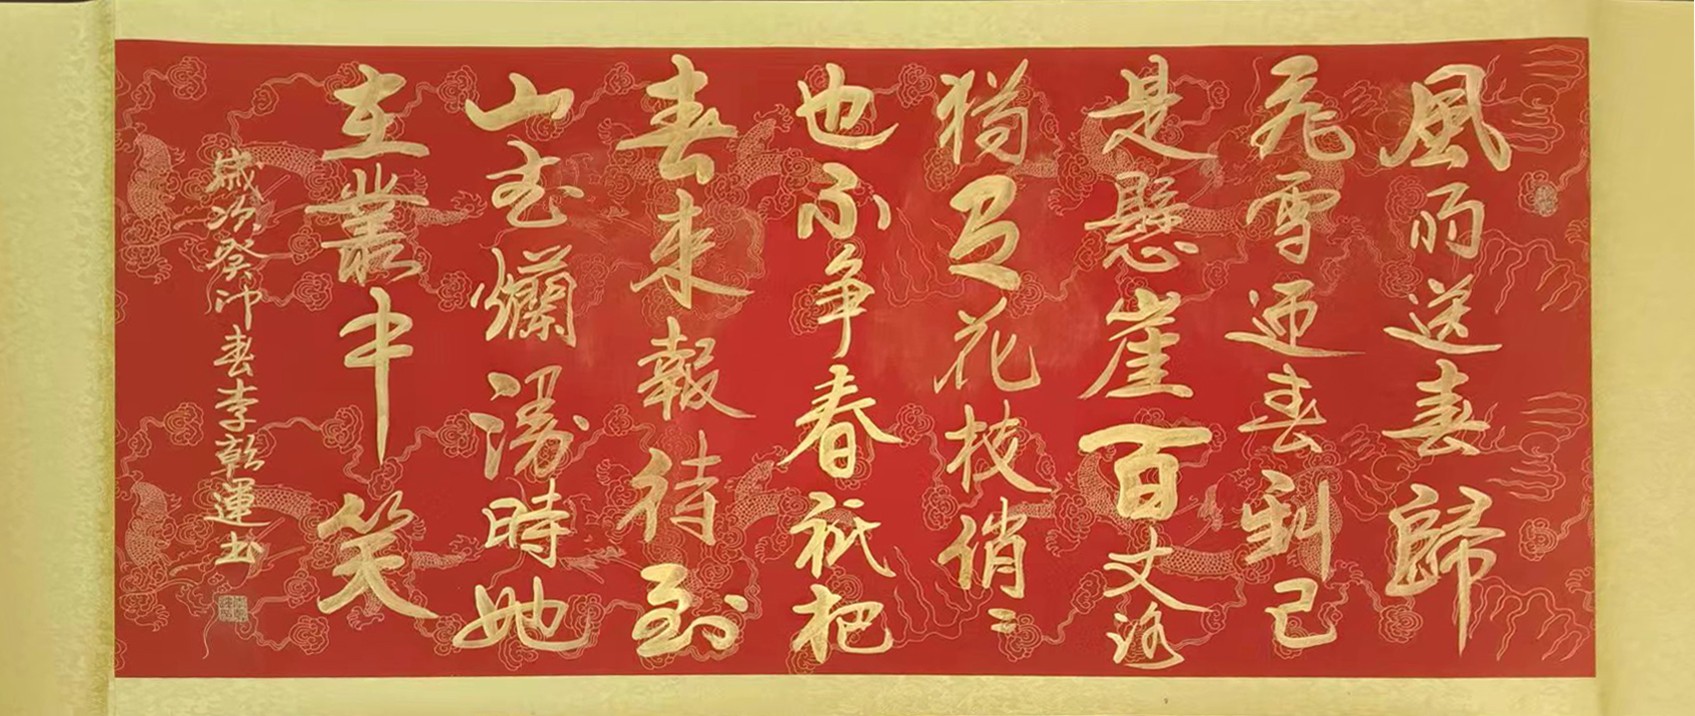 風雨送春歸
飛雪迎春到已
是懸崖百丈冰
猶有花枝俏〻
也不争春祇把
春来報待到
山花爛漫時她
在叢中笑
歲次癸卯春李乾運书